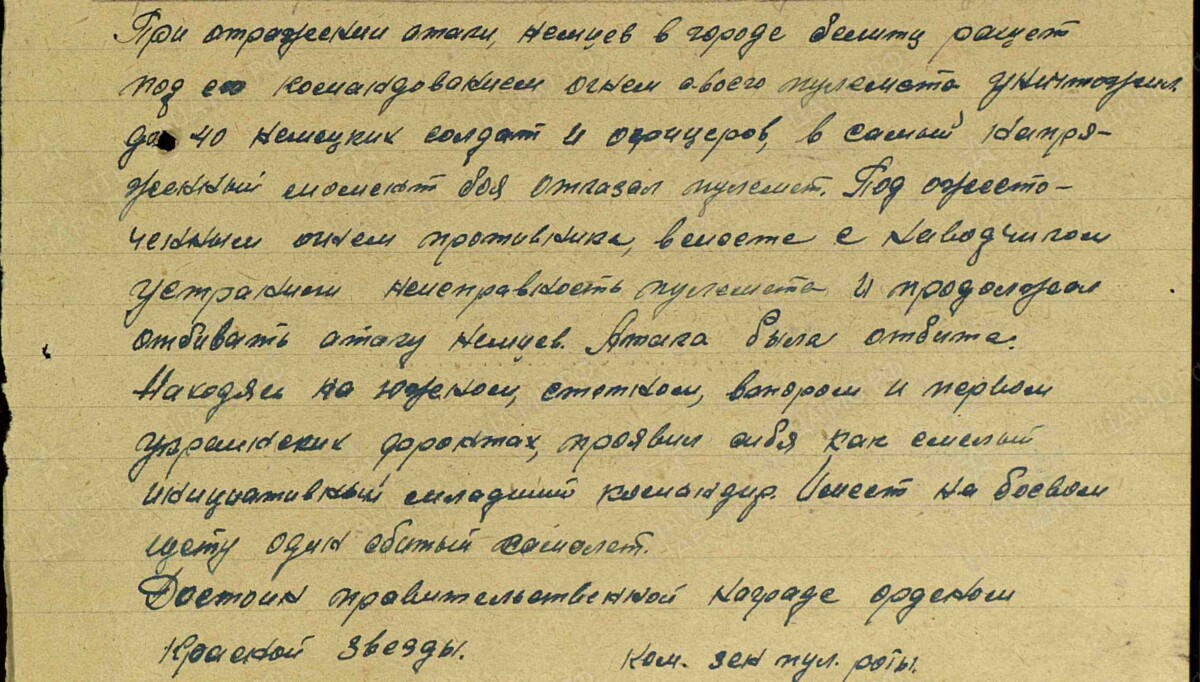 При отражении атаки, немцев в городе белитц расчет
под его командованием огнем своего пулемета уничтожил
до 40 немецких солдат и офицеров, в самый напря-
женный момент боя отказал пулемет. Под ожесто-
ченным огнем противника, вместе с наводчиком
устранил неисправность пулемета и продолжал
отбивать атаку немцев. Атака была отбита.
Находясь на южном, степном, втором и первом
украинских фронтах, проявил себя как смелый
инициативный младший командир. Имеет на боевом
щету один сбитый самолет.
Достоин правительственной награде орденом
Красной звезды.
Ком. зен пул. роты.